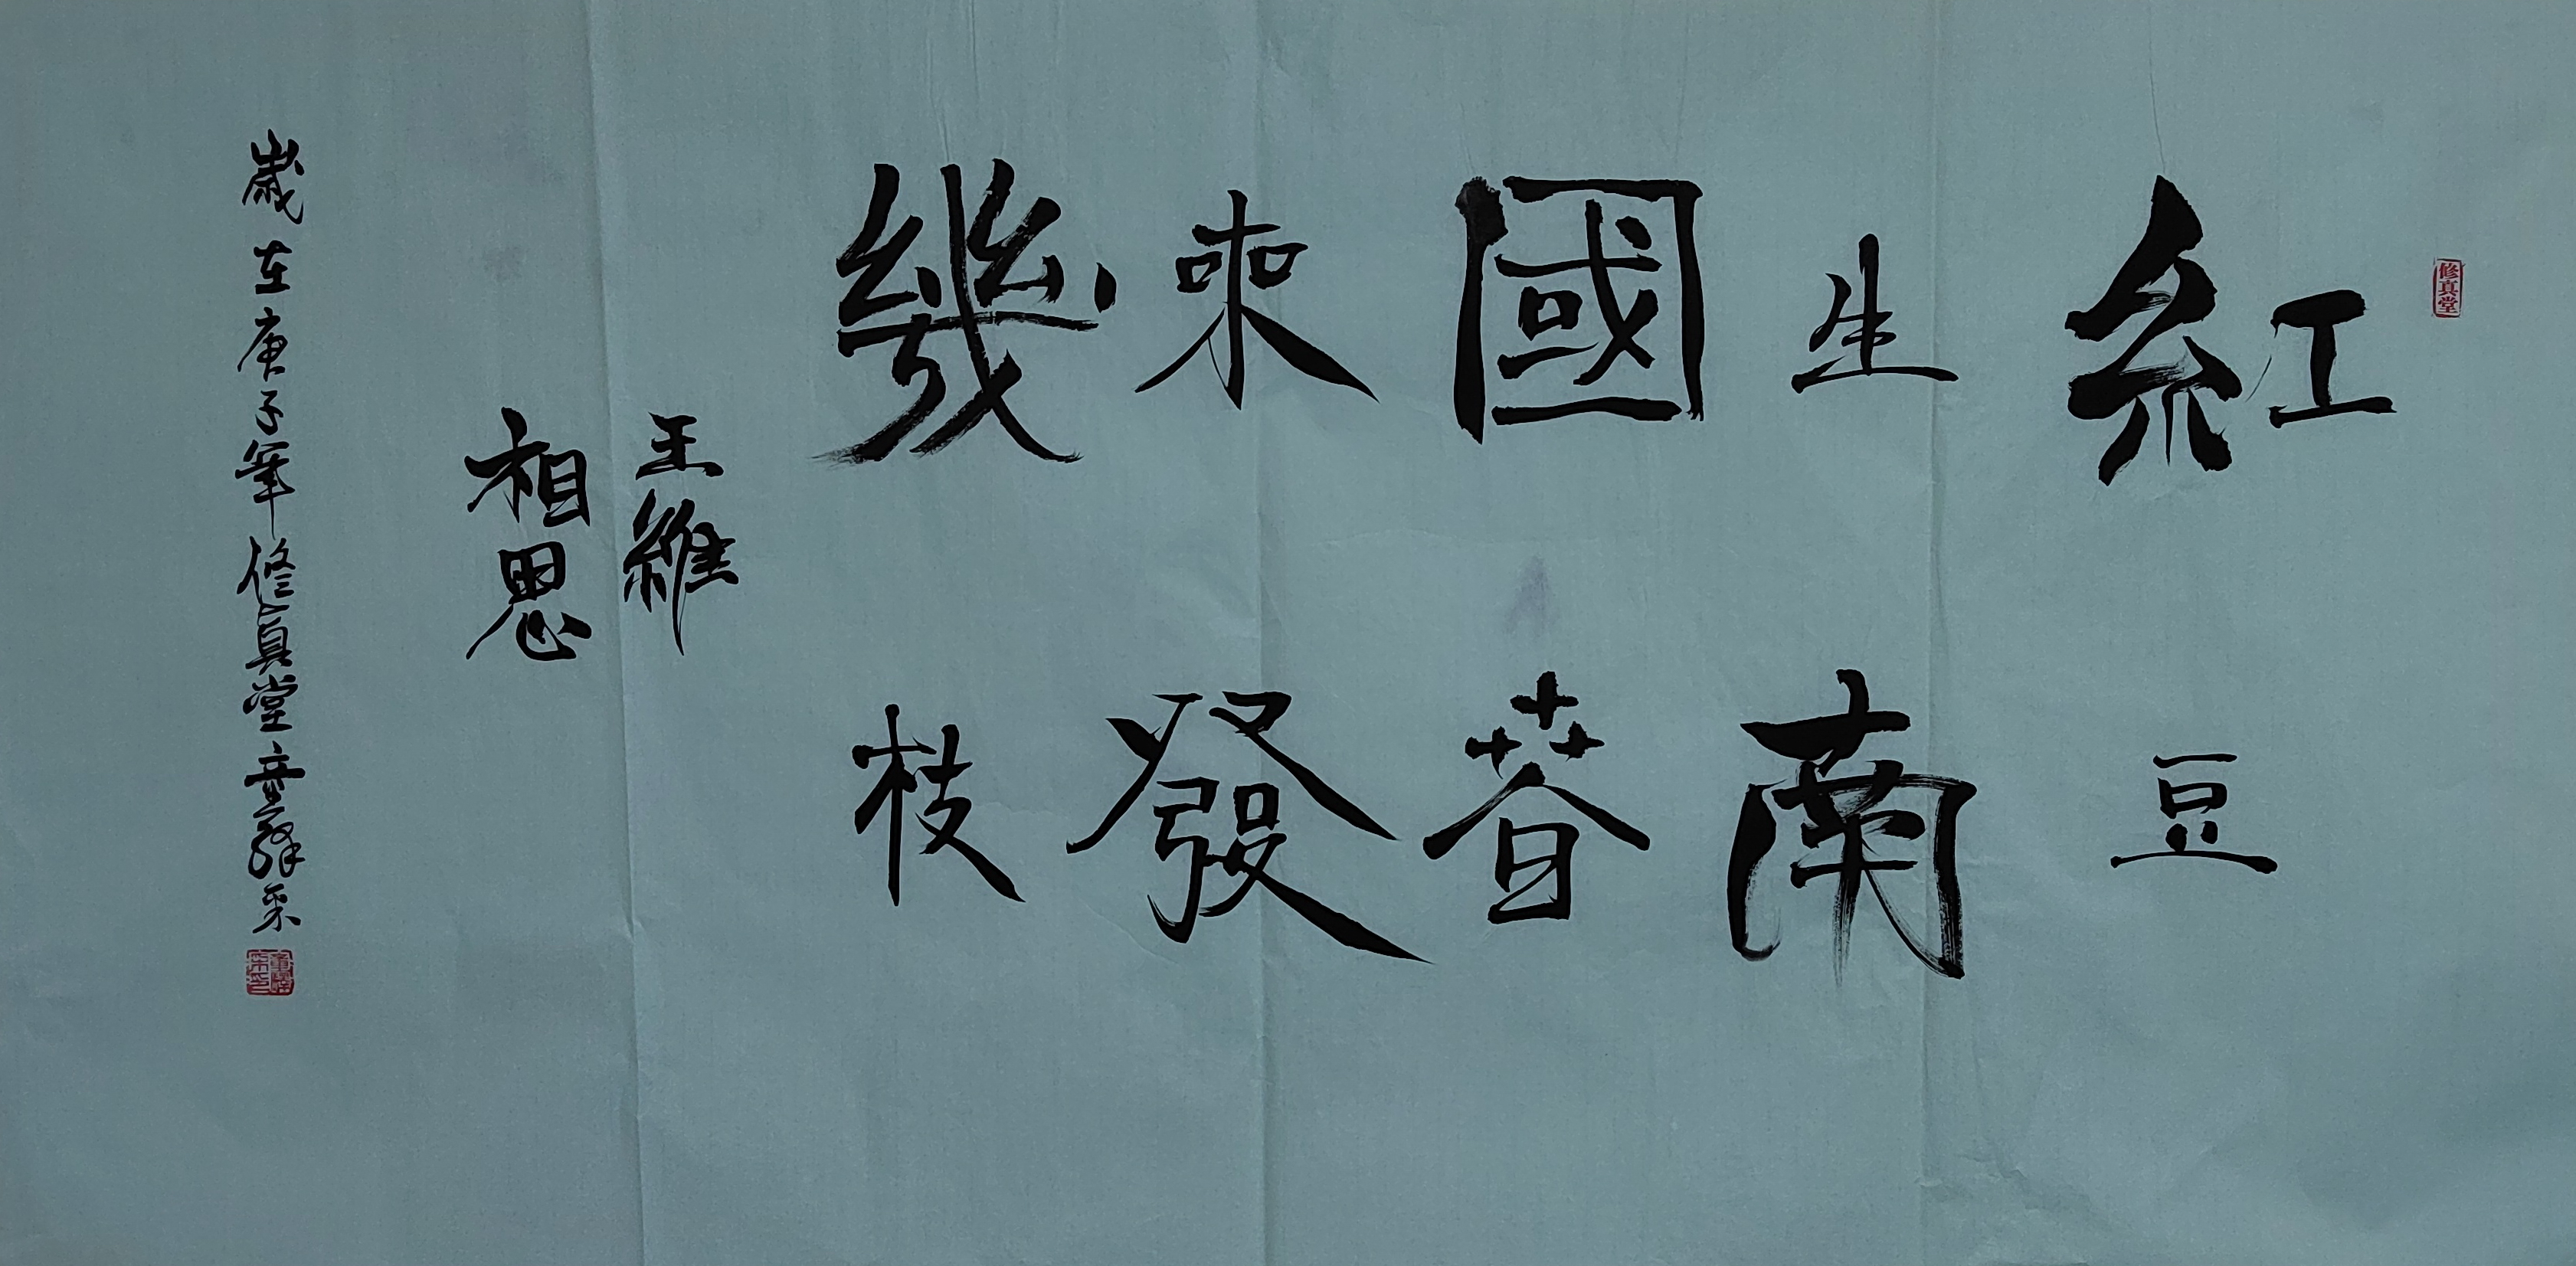 修真堂
紅豆
生南
國春
來發
幾枝
王維
相思
歲在庚子年修真堂童辉采